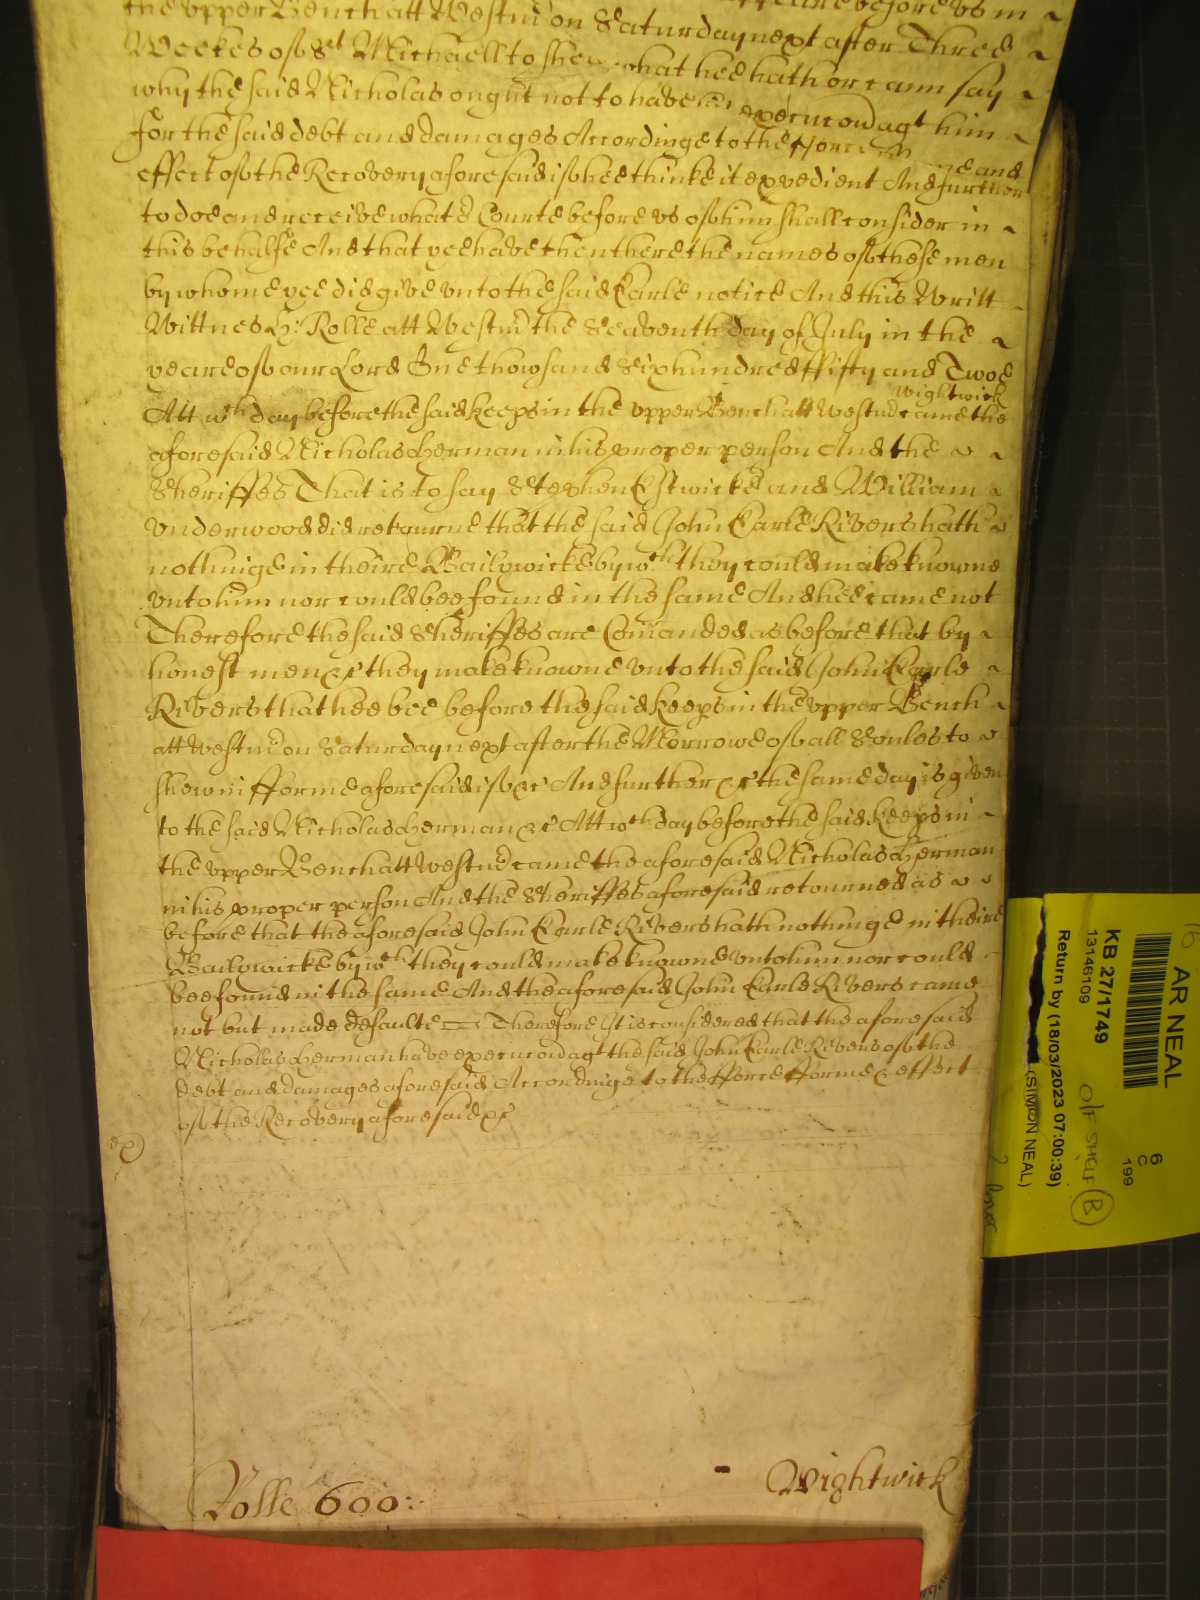 the vpper Bench att Westm on Saturday next after Three
Weekes of St Michaell to shew what hee hath or cann say
why the said Nicholas ought not to have his execucon agt him
for the said debt and damages Accordinge to the fforce and
effect of the Recovery aforesaid if hee thinke it expedient And further
to doe and receive what ye Courte before vs of him shall consider in
this behalfe And that yee have then there the names of these men
by whome yee did give vnto the said Earle notice And this Writt
Wittnes H: Rolle att Westm the Seaventh day of July in the
yeare of our Lord One thowsand Sixhundred ffifty and Twoe
Wightwick
Att wch day before the said keeps in the vpper Bench att Westm came the
aforesaid Nicholas Herman in his proper person And the
Sheriffes That is to say Stephen Estwicke and William
Vnderwood did retourne that the said John Earle Rivers hath
nothinge in theire Bailywicke by wch they could make knowne
vnto him nor could bee found in the same And hee came not
Therefore the said Sheriffes are Comanded as before that by
honest men &c they make knowne vnto the said John Earle
Rivers that hee bee before the said keeps in the vpper Bench
att Westm on Saturday next after the Morrowe of all Soules to
shew in fforme aforesaid if &c And further &c the same day is given
to the said Nicholas Herman &c Att wch day before the said keeps in
the vpper Bench att Westm came the aforesaid Nicholas Herman
in his proper person And the Sheriffes aforesaid retourned as
before that the aforesaid John Earle Rivers hath nothinge in theire
Bailywicke by wch they could make knowne vnto him nor could
bee found in the same And the aforesaid John Earle Rivers came
not but made defaulte Therefore It is considered that the aforesaid
Nicholas Herman have execucon agt the said John Earle Rivers of the
debt and damages aforesaid Accordinge to the fforce fforme & effect
of the Recovery aforesaid &c
Rolle 600:
Wightwick
AR NEAL
6
C
199
KB 27/1749
13146109
O/F SHELF B
Return by (18/03/2023 07:00:39)
(SIMON NEAL)